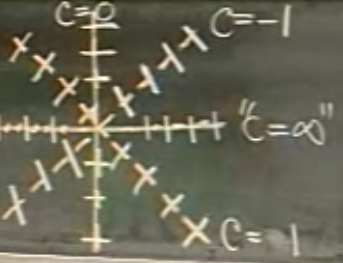 C=0
C=-1
"C=∞"
C=1